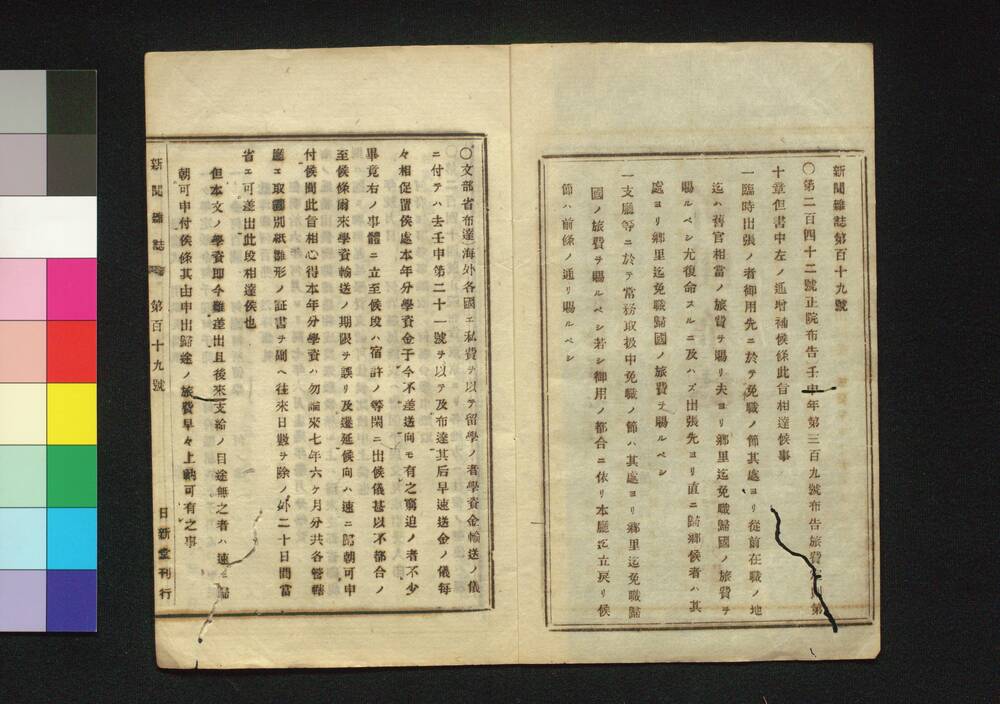 新聞雜誌第百十九號
〇第二百四十二號正院布告壬申年第三百九號布告旅費
十章但書中左ノ通增補候條此旨相達候事
一臨時出張ノ者御用先ニ於テ免職ノ節其處ヨリ從前在職ノ地
迄ハ舊官相當ノ旅費ヲ賜リ夫ヨリ鄕里迄免職歸國ノ旅費ヲ
賜ルベシ尤復命スルニ及ハズ出張先ヨリ直ニ歸鄕候者ハ其
處ヨリ鄕里迄免職歸國ノ旅費ヲ賜ルベシ
一支廳等ニ於テ當務取扱中免職ノ節ハ其處ヨリ鄕里迄免職歸
國ノ旅費ヲ賜ルベシ若シ御用ノ都合ニ依リ本廳迄立戾リ候
節ハ前條ノ通リ賜ルベシ
〇文部省布達海外各國エ私費ヲ以テ留學ノ者學資金輸送ノ儀
ニ付テハ去壬申第二十一號ヲ以テ及布達其后早速送金ノ儀每
々相促置候處本年分學資金于今不差送向モ有之窮迫ノ者不少
畢竟右ノ事體ニ立至候段ハ宿許ノ等閑ニ出候儀甚以不都合ノ
至候條爾來學資輸送ノ期限ヲ誤リ及遷延候向ハ速ニ歸朝可申
付候間此旨相心得本年分學資ハ勿論來七年六ヶ月分共各管轄
廳エ取纒別紙雛形ノ証書ヲ副ヘ往來日數ヲ除ノ外二十日間當
省エ可差出此段相達候也
但本文ノ學資即今難差出且後來支給ノ目途無之者ハ速ニ歸
朝可申付候條其由申出歸途ノ旅費早々上納可有之事
新聞雜誌 第百十九號 日新堂刊行